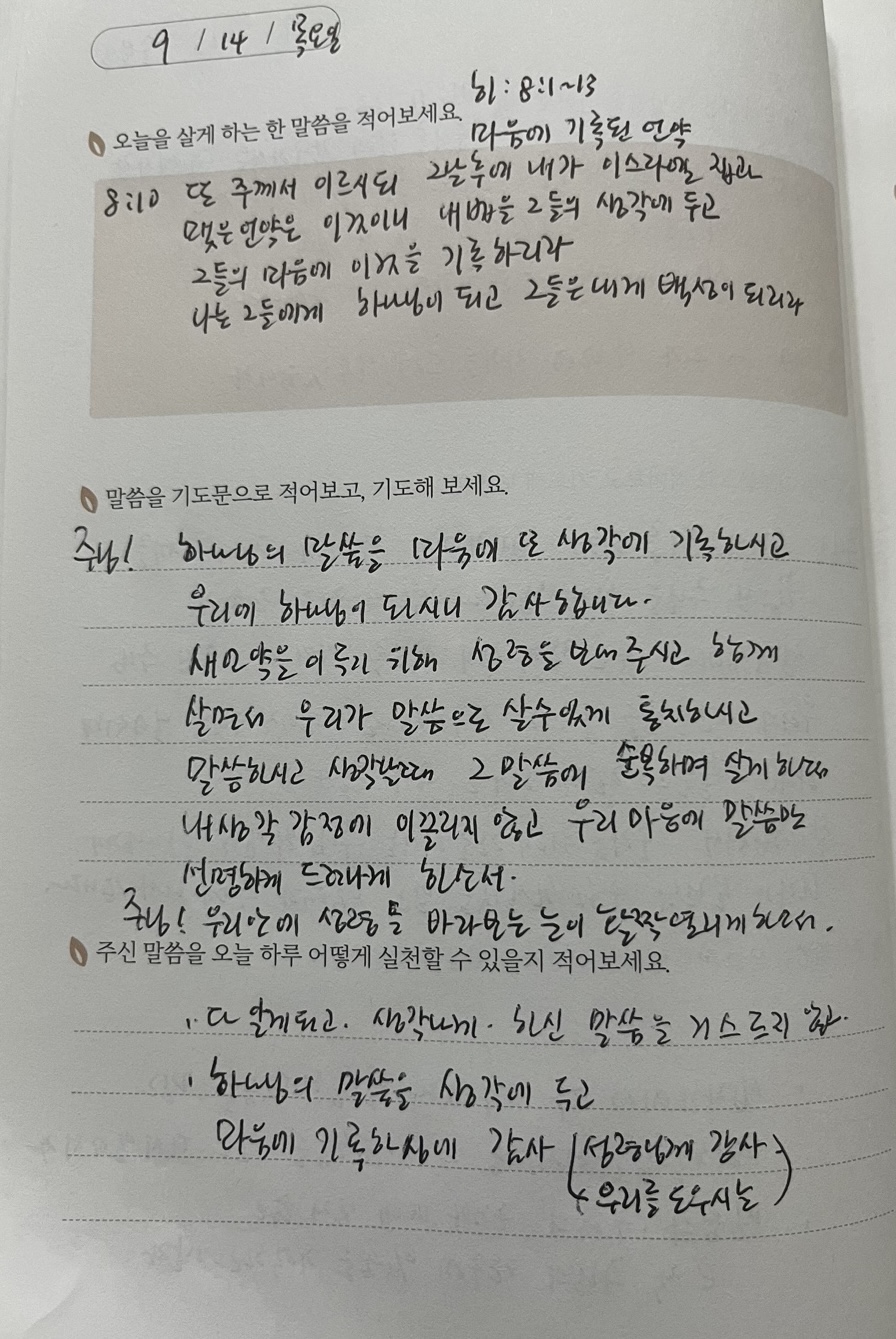 9 / 14 / 목요일
히 : 8:1~13
오늘을 살게 하는 한 말씀을 적어보세요.
마음에 기록된 언약
8:10 또 주께서 이르시되 그날 후에 내가 이스라엘 집과
맺은 언약은 이것이니 내 법을 그들의 생각에 두고
그들의 마음에 이것을 기록하리라
나는 그들에게 하나님이 되고 그들은 내게 백성이 되리라
말씀을 기도문으로 적어보고, 기도해 보세요.
주님! 하나님의 말씀을 마음에 또 생각에 기록하시고
우리에 하나님이 되시니 감사합니다.
새언약을 이루기 위해 성령을 보내 주시고 함께
살면서 우리가 말씀으로 살수있게 통치하시고
말씀하시고 생각날때 그 말씀에 순복하며 살게 하소서
내 생각 감정에 이끌리지 않고 우리 마음에 말씀만
선명하게 드러나게 하소서.
주님! 우리안에 성령을 바라보는 눈이 활짝 열리게 하소서.
주신 말씀을 오늘 하루 어떻게 실천할 수 있을지 적어보세요.
다 알게되고. 생각나게. 하신 말씀을 거스르지 않고.
하나님의 말씀을 생각에 두고
마음에 기록하심에 감사 (성령님께 감사
우리를 도우시는)